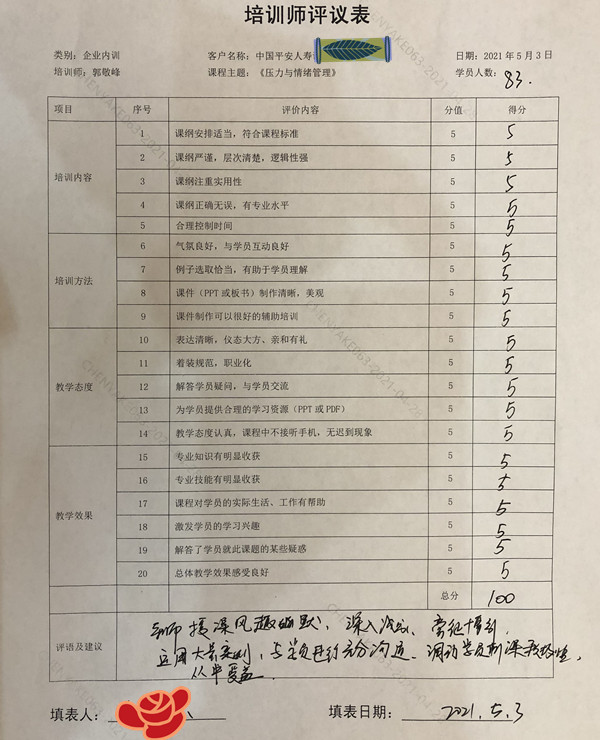 培训师评议表
类别：企业内训 客户名称：中国平安人寿 日期：2021年5月3日
培训师：郭敬峰 课程主题：《压力与情绪管理》 学员人数：83.
项目 序号 评价内容 分值 得分
培训内容
1 课纲安排适当，符合课程标准 5 5
2 课纲严谨，层次清楚，逻辑性强 5 5
3 课纲注重实用性 5 5
4 课纲正确无误，有专业水平 5 5
5 合理控制时间 5 5
培训方法
6 气氛良好，与学员互动良好 5 5
7 例子选取恰当，有助于学员理解 5 5
8 课件（PPT或板书）制作清晰，美观 5 5
9 课件制作可以很好的辅助培训 5 5
教学态度
10 表达清晰，仪态大方、亲和有礼 5 5
11 着装规范，职业化 5 5
12 解答学员疑问，与学员交流 5 5
13 为学员提供合理的学习资源（PPT或PDF） 5 5
14 教学态度认真，课程中不接听手机，无迟到现象 5 5
教学效果
15 专业知识有明显收获 5 5
16 专业技能有明显收获 5 5
17 课程对学员的实际生活、工作有帮助 5 5
18 激发学员的学习兴趣 5 5
19 解答了学员就此课题的某些疑惑 5 5
20 总体教学效果感受良好 5 5
总分 100
评语及建议
老师授课风趣幽默，深入浅出，
运用大量案例，与学员进行充分沟通，调动学员听课积极性，
填表人： 填表日期：2021.5.3